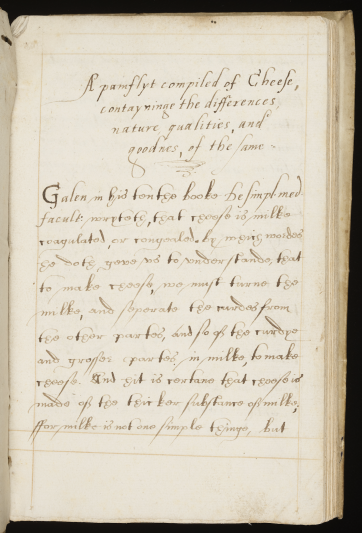 A pamflyt compiled of Cheese,
contayninge the differences,
nature, qualities, and
goodnes, of the same.
Galen, in his tenthe booke De simpl: med
facult: wryteth, that cheese is milke
coagulated, or congealed, by which wordes
he doth geve us to understande, that
to make cheese, we must turne the
milke, and seperate the curdes from
the other partes, and so of the curdye
and grosser partes, in milke, to make
cheese. And yit is certane that cheese is
made of the thicker substance of milke,
ffor milke is not one simple thinge, but